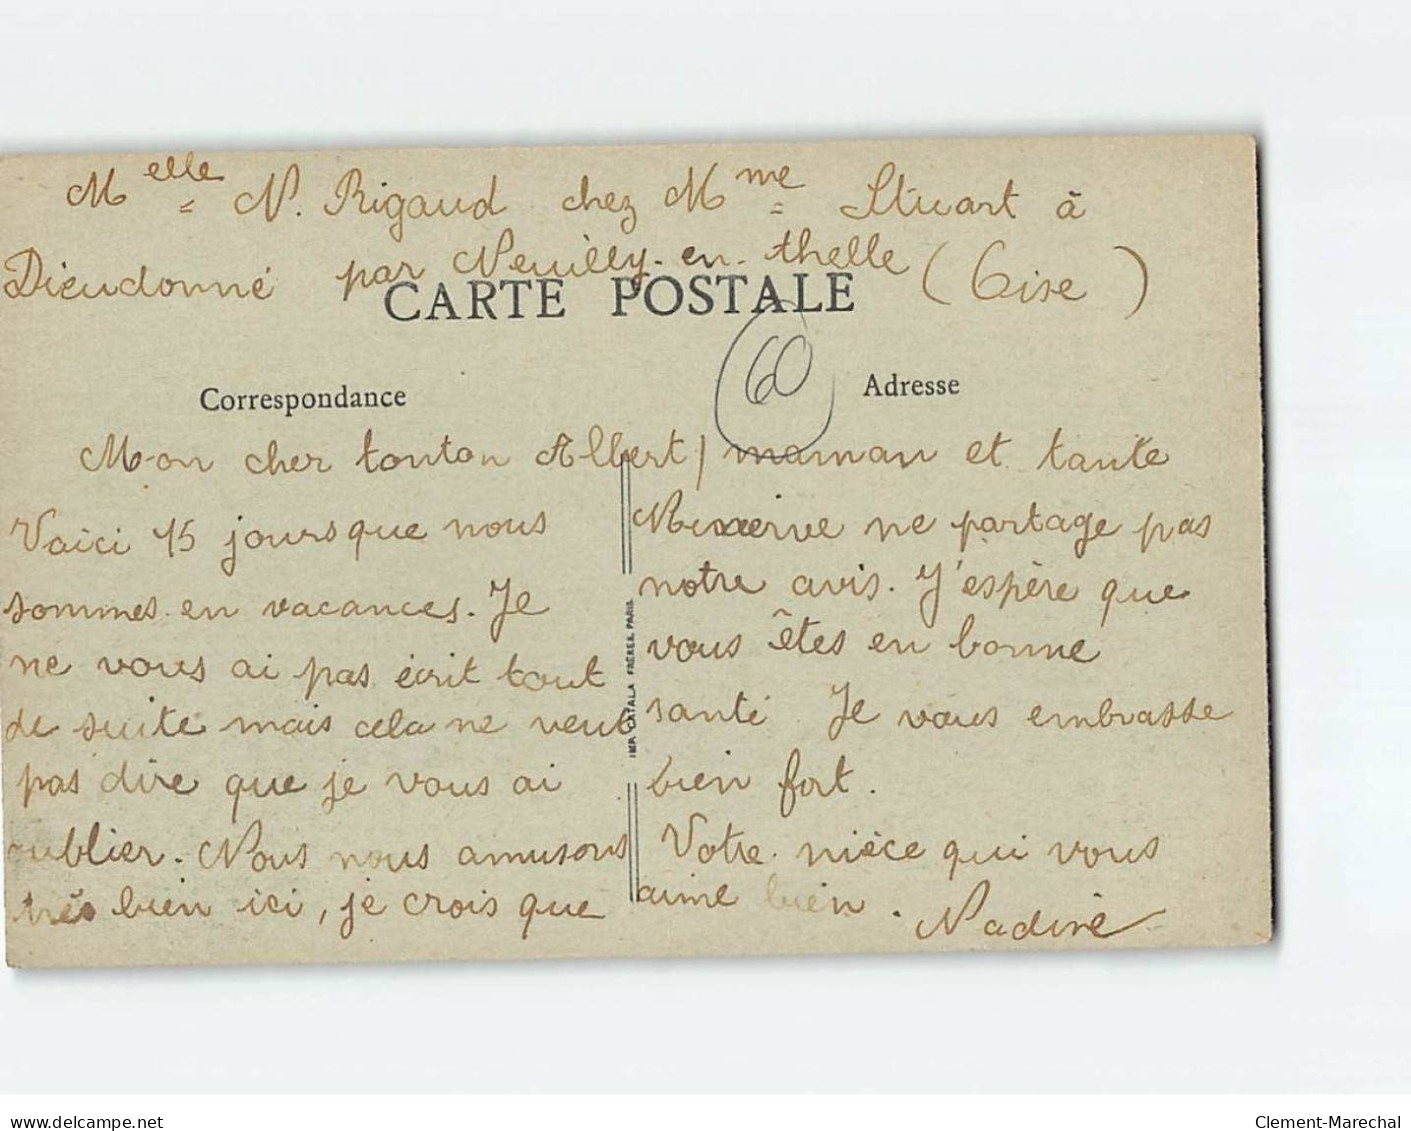 Melle N. Rigaud chez Mme Stuart à
Dieudonné par Neuilly-en-thelle (Oise)
CARTE POSTALE
60
Correspondance
Adresse
Mon cher tonton Albert,
Voici 15 jours que nous
sommes en vacances. Je
ne vous ai pas écrit tout
de suite mais cela ne veut
pas dire que je vous ai
oublier. Nous nous amusons
très bien ici, je crois que
IMP. CATALA FRÈRES, PARIS
maman et tante
ne partage pas
notre avis. J'espère que
vous êtes en bonne
santé. Je vous embrasse
bien fort.
Votre nièce qui vous
aime bien.
Nadine
delcampe.net
Clement-Marechal